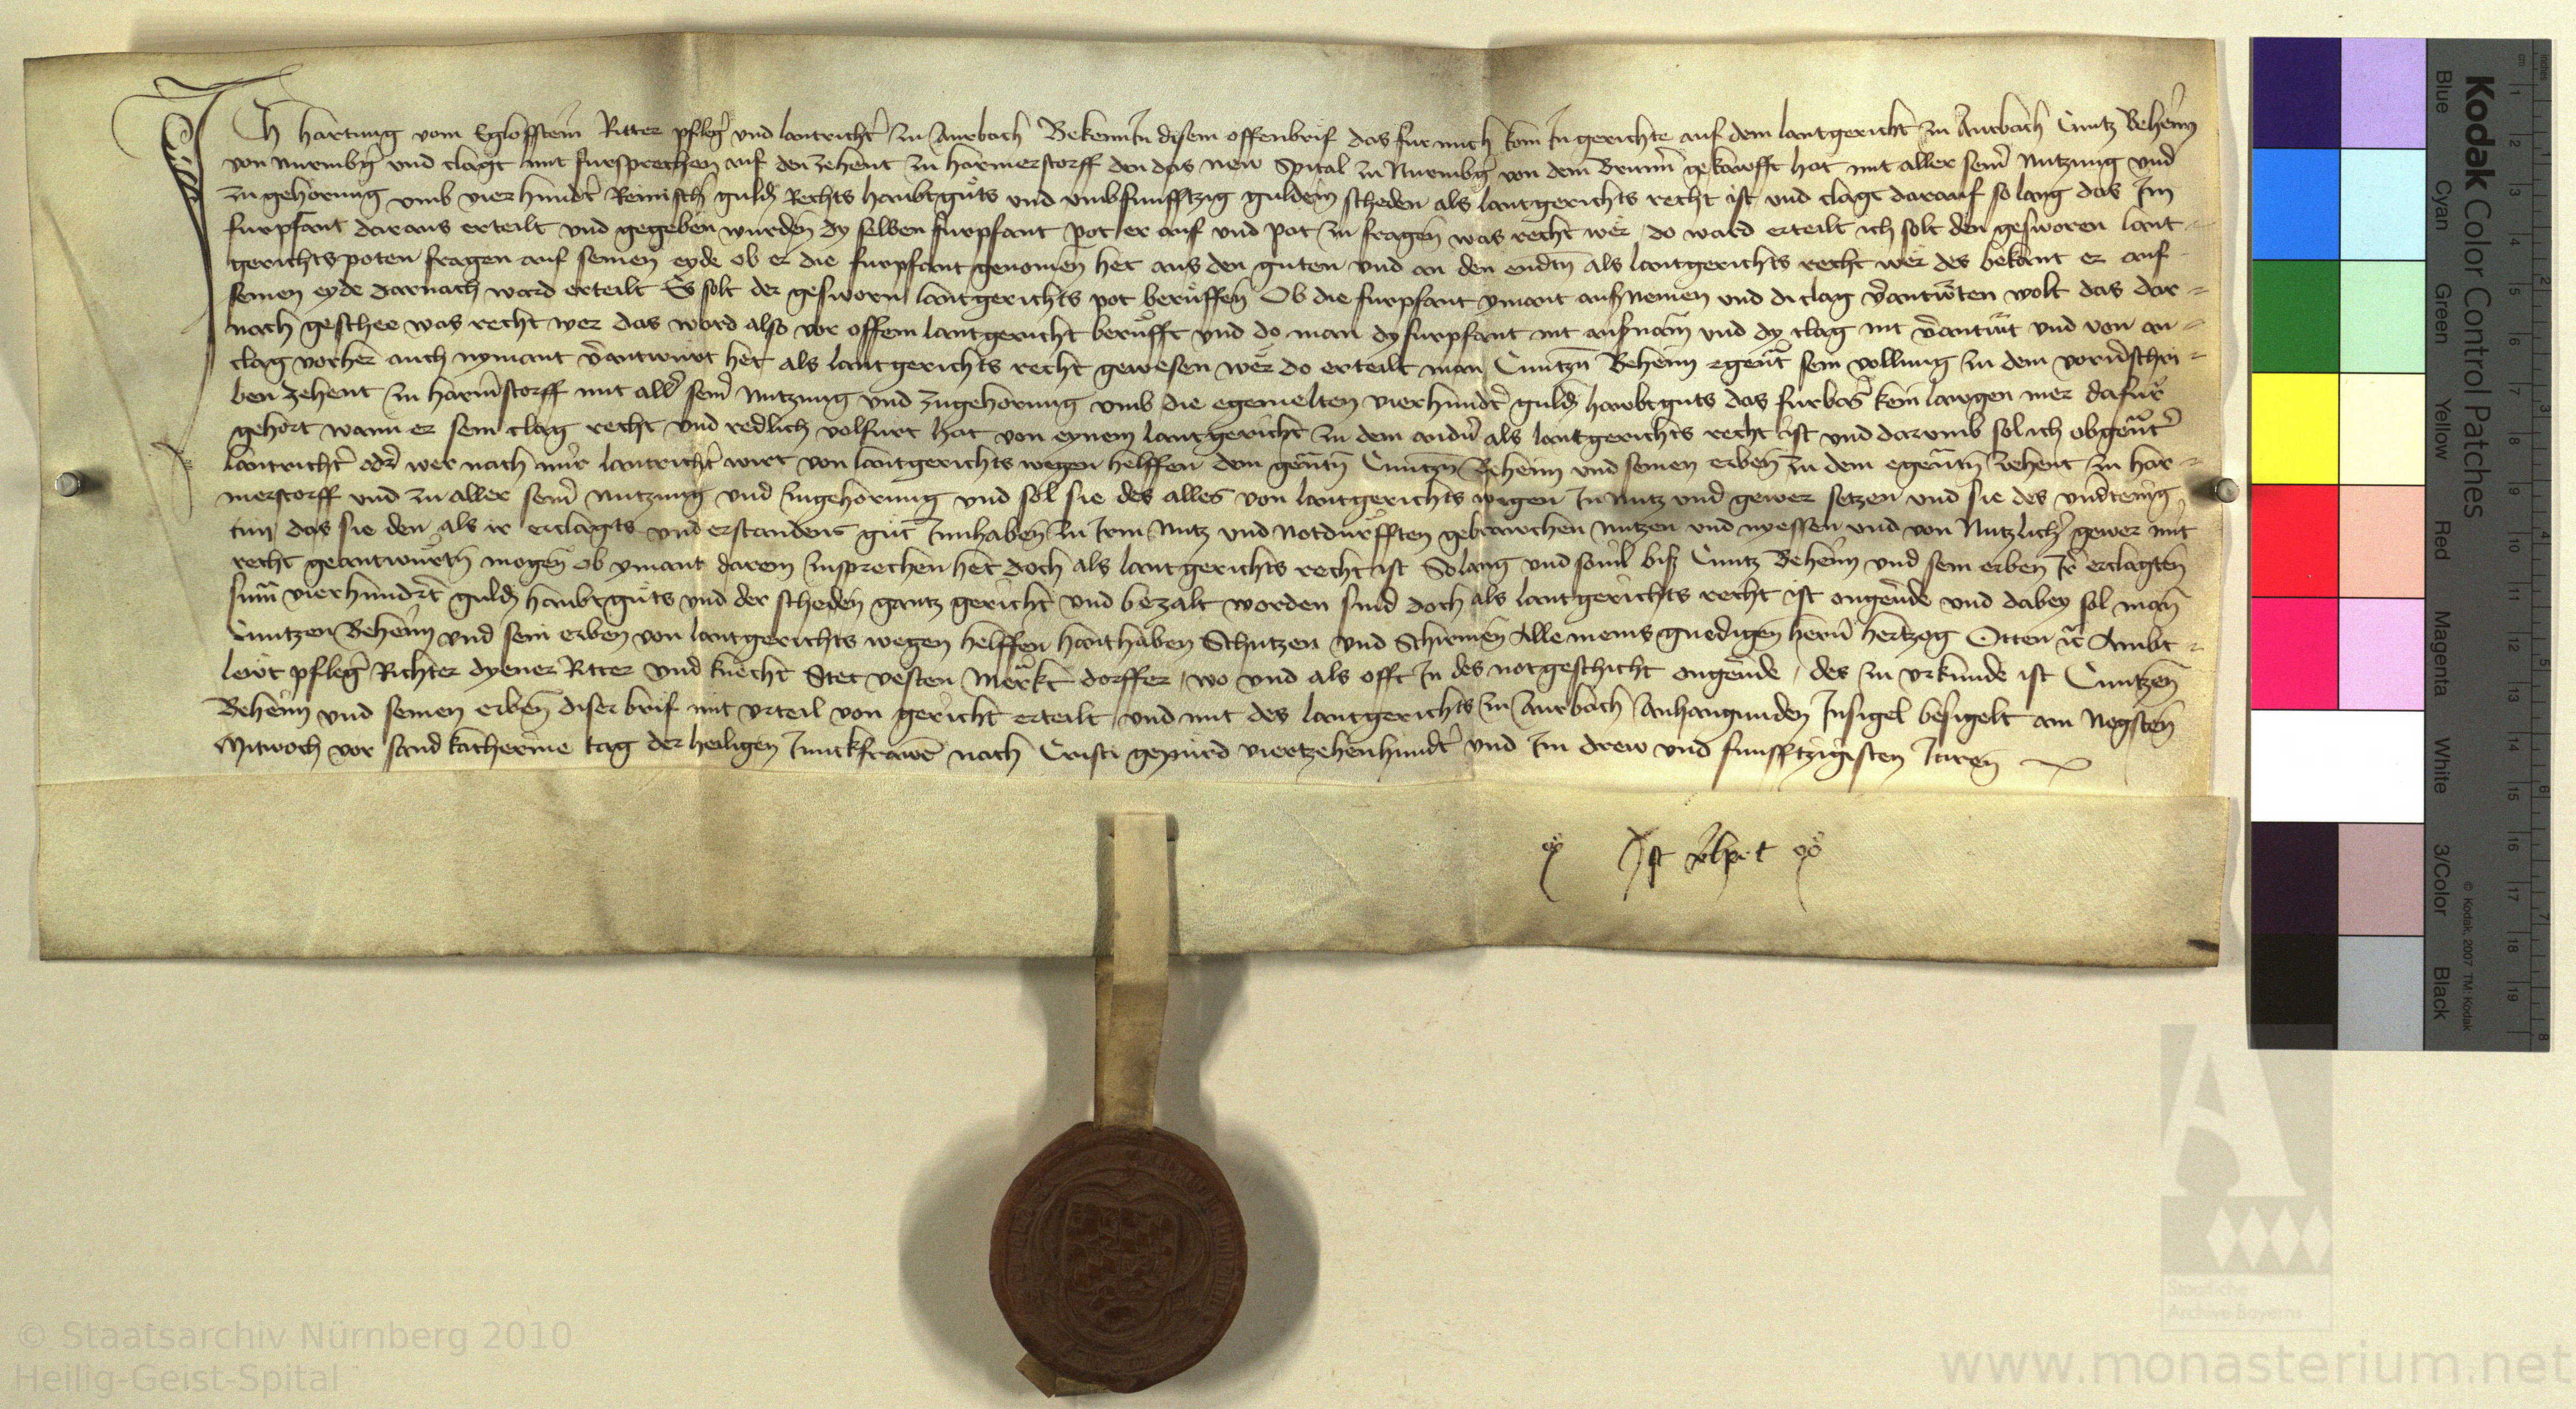 Ich Hartung vom Eglofstein Ritter pfleg̃ und lantricht̃ zu Aurbach Bekenn In disem offenbrif das fur mich kom In gerichte auf dem lantgericht zu Aurbach Cuntz Beheim
von Nurmbg̃ und clagt mit fursprechen auf den Zehent zu harmerstorff den das new Spital zu Nurmbg̃ von dem Brunn̄ gekawfft hat mit aller seiner Nutzung und
zu gehorung umb vier hundt̃ Reinisch guld̃ Rechts haubtgůts und umb funfftzig guldein scheden als lantgerichts recht ist und clagt darauf so lang das Im
furpfant daraus erteilt und gegeben wurden dy selben furpfant pot er auf und pat zu fragen was recht wer do ward erteilt ich solt den gesworen lant-
gerichtspoten fragen auf seinen eyde ob er die furpfant genomen het aus den guten und an den endtn̄ als lantgerichts recht wer des bekant er auf
seinen eyde darnach ward erteilt Es solt der gesworn lantgerichts pot berůffen Ob die furpfant ymant aufnemen und di clag v̄antwo̊ten wolt das dar-
nach geschee was recht wer das ward also vor offem lantgericht berůfft und do man dy furpfant nit aufnam̄ und dy clag nit v̄antwůt und von an-
clag vorher auch nymant v̄antwurt het als lantgerichts recht gewesen wer do erteilt man Cuntzn̄ Beheim egen̄t sein vollung zu dem vorũschri-
ben Zehent zu harm̃storff mit all̃ sein̄ Nutzung und Zugehorung umb die egemelten vierhundt̃ guld̃ haubtguts das furbas̃ kein lawgen mer dafur
gehort wann er sein clag recht und redlich volfurt hat von eynem lantgericht zu dem and̃n als lantgerichts recht ist und darumb sol ich obgen̄t̃
lantricht̃ od̃ wer nach mir lantricht̃ wirt von lantgerichts wegen helffen dem gen̄tn̄ Cuntzn̄ Beheim und seinen erben̄ zu dem egen̄tn̄ Zehent zu har-
merstorff und zu aller sein̄ Nutzung und Zugehorung und sol sie des alles von lantgerichts wegen In nutz und gewer setzen und sie des und̃tenig
tun das sie den als ir erclagts und erstandens gůt Innhaben zu Irm Nutz und Notdurfften gebrawchen nutzen und nyessen und von Nutzlich̃ gewer mit
recht geantwurtn̄ mogen ob ymant darein zusprechen het doch als lantgerichts recht ist Solang und souil bisz Cuntz Beheim und sein erben Ir̃ erclagten
Sum̄ vierhundert̃ guld̃ haubtgůts und der scheden gantz gericht und bezalt worden sind doch als lantgerichts recht ist ongeũde und dabey sol man̄
Cuntzen Beheim und sein erben von lantgerichts wegen helffen hanthaben Schutzen und Schirmen Alle meins gnedigen herñ hertzog Otten ꝛc Ambt-
lewt pfleg̃ Richter dyener Ritter und knecht Stet vesten Merkt dorffer wo und als offt In des not geschicht ongeũde des zu urkunde ist Cuntzen̄
Beheim und seinen erben̄ diser brif mit urteil von gericht erteilt und mit des lantgerichts zu Aurbach Anhangunden Insigel besigelt am Negsten̄
Mitwoch vor sand katherine tag der heiligen Junckfrawē nach Cristi gepurd viertzehenhundt̃ und Im drew und funfftzigisten Jaren
Ist
© Staatsarchiv Nürnberg 2010
Heilig-Geist-Spital
www.monasterium.net
Staatliche
Archive Bayerns
Kodak Color Control Patches
Blue Cyan Green Yellow Red Magenta White 3/Color Black
© Kodak, 2007 TM: Kodak
cm 1 2 3 4 5 6 7 8 9 10 11 12 13 14 15 16 17 18 19
inches 1 2 3 4 5 6 7 8